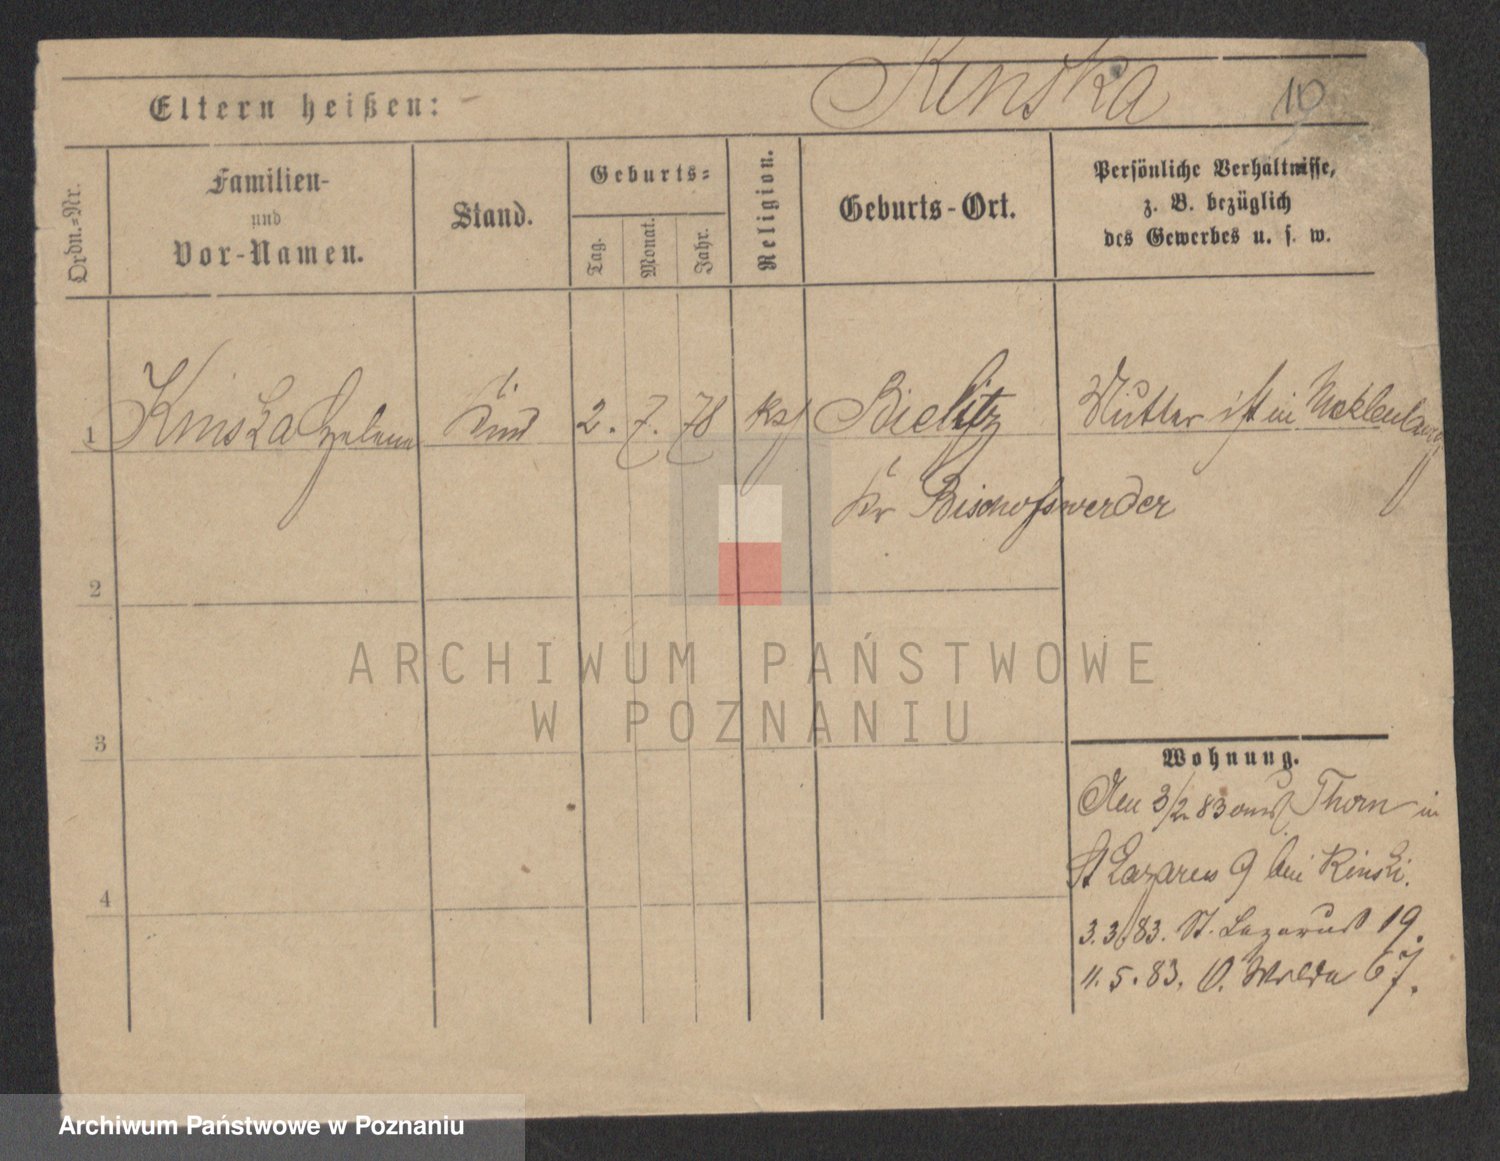 Kinska 10
Eltern heißen:
Ordn.-Nr.
Familien-
und
Vor-Namen.
Stand.
Geburts-
Tag.
Monat.
Jahr.
Religion.
Geburts-Ort.
Persönliche Verhältnisse,
z. B. bezüglich
des Gewerbes u. s. w.
1 Kinska Helene Kind 2. 7. 78 Bielitz Mutter ist in Mecklenburg
Kr Bischofswerder
2
3
4
ARCHIWUM PAŃSTWOWE
W POZNANIU
Wohnung.
Den 3/2 83 aus Thorn in
St Lazarus 9 bei Kinski.
3.3.83. St. Lazarus 19.
11.5.83. O. Wilda 67.
Archiwum Państwowe w Poznaniu